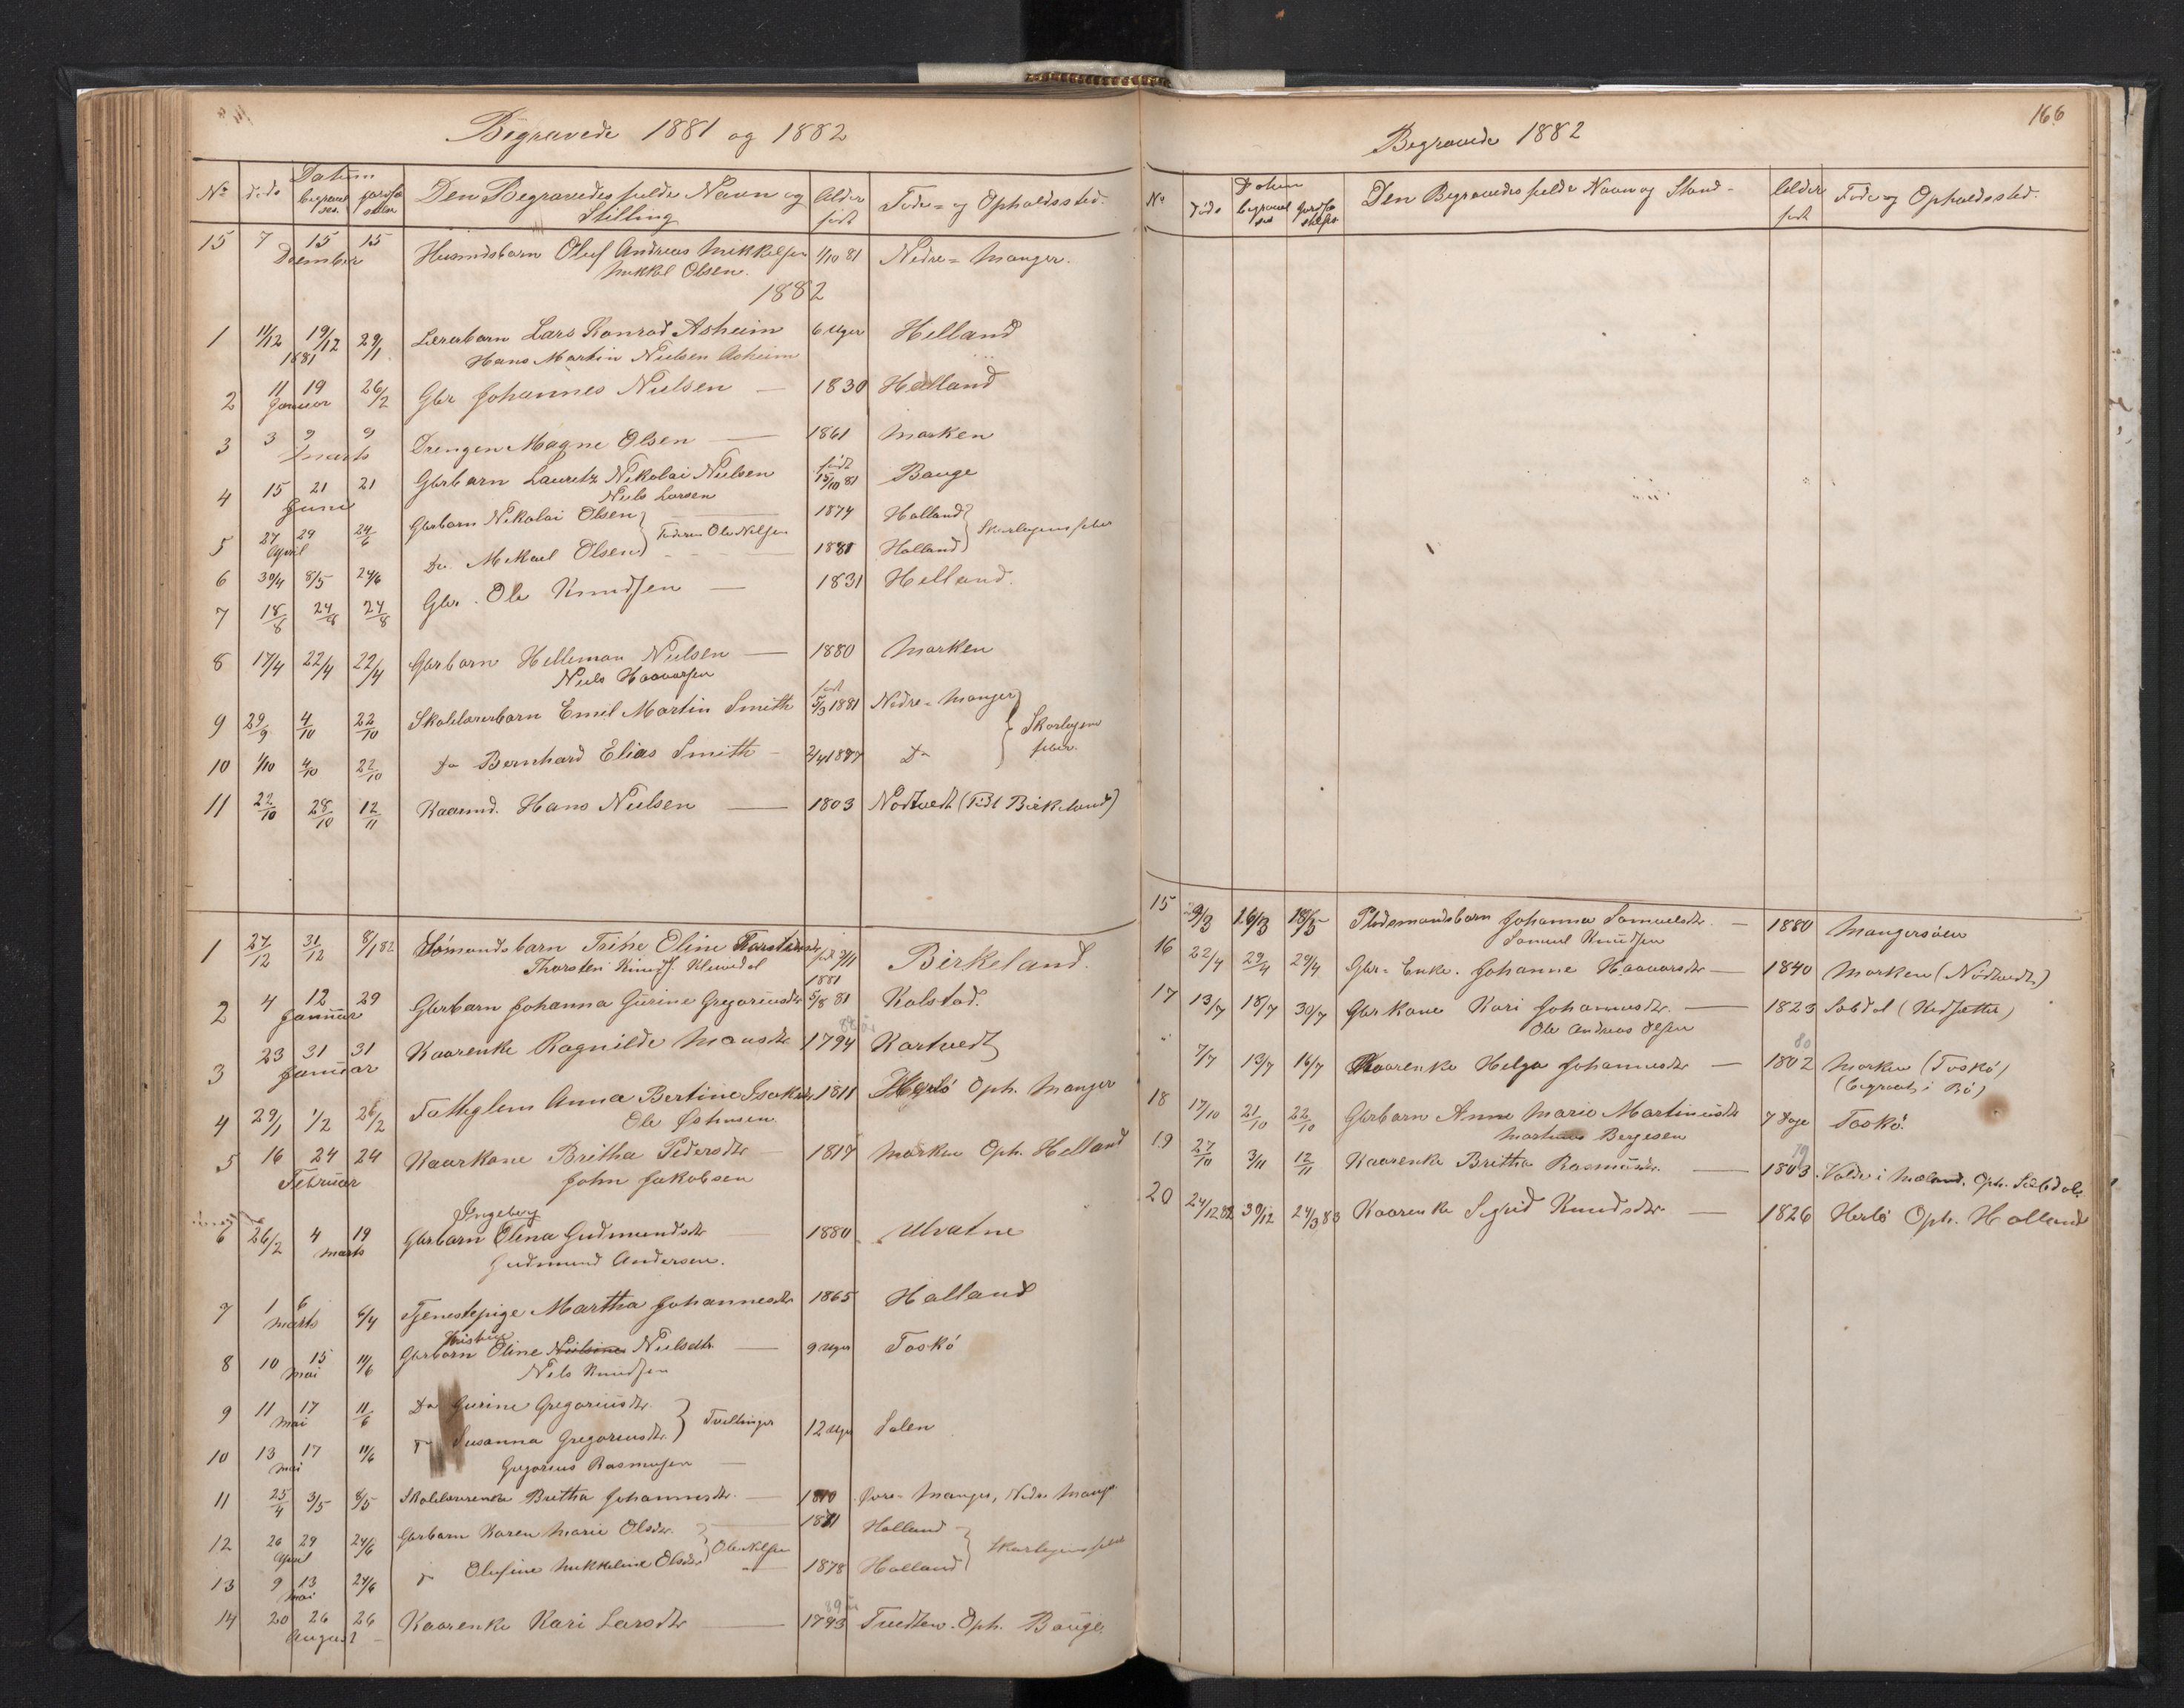 Begravede 1881 og 1882
No døde Datum begravelse Jordfæstelse Den Begravedes fulde Navn og Stilling Alder født Føde- og Opholdssted.
15 7 15 15 December Husmdsbarn Oluf Andreas Mikkelsen 1/10 81 Nedre-Manger.
Mikkel Olsen.
1882
1 11/12 19/12 1881 29/1 Lærerbarn Lars Konrad Asheim 6 Uger Helland
Hans Martin Nielsen Asheim
2 11 19 Januar 26/2 Gbr Johannes Nielsen — 1830 Helland
3 3 9 9 Marts Drengen Magne Olsen — 1861 Marken
4 15 21 21 Juni Gbrbarn Lauritz Nikolai Nielsen født 15/10 81 Bauge
Niels Larsen
5 27 29 April 24/6 Gbrbarn Nikolai Olsen 1874 Halland
Faderen Ole Nilsen Skarlagensfeber
6 30/4 8/5 24/6 Do. Mikael Olsen 1881 Halland
7 18/8 24/8 24/8 Gbr. Ole Knudsen — 1831 Helland.
8 17/4 22/4 22/4 Gbrbarn Helleman Nielsen — 1880 Marken
Niels Haavarsen
9 29/9 4/10 22/10 Skolelærerbarn Emil Martin Smith født 5/3 1881 Nedre-Manger
Skarlagens feber.
10 1/10 4/10 22/10 Do Bernhard Elias Smith - 2/4 1877 Do
11 22/10 28/10 12/11 Kaarmd. Hans Nielsen — 1803 Nodtvedt (Født Birkeland)
1 27/12 31/12 8/1 82 Trine Eline Karstine født 9/11 1881 Birkeland.
Thorsten Knuds.
2 4 12 29 Januar Gbrbarn Johanna Gurine Gregoriusdtr 5/8 81 Kalstad.
3 23 31 31 Januar Kaarenke Ragnilde Monsdtr 88 år 1794 Kartvedt
4 29/1 1/2 26/2 Fattiglem Anna Bertine Isaksdtr 1811 Herlö Oph. Manger
Ole
5 16 24 24 Februar Kaarkone Britha Pedersdtr 1817 Marken Oph. Helland
John Jakobsen
Ingeborg
6 26/2 4 19 Marts Gbrbarn Elina Gudmundsdtr — 1880 Ulvatne
Gudmund Andersen.
7 1 6 Marts 6/4 Tjenestepige Martha Johannesdtr 1865 Halland
8 10 15 Mai 11/6 Gbrbarn Oline Nielsine Nielsdtr. — 9 Uger Toskö
Nils Knudsen
9 11 17 Mai 11/6 Do Gurine Gregoriusdtr.
Tvillinger 12 Uger Solen
10 13 17 Mai 11/6 Susanna Gregoriusdtr.
Gregorius Rasmusen —
11 25/4 3/5 8/5 Skolelærerenke Britha Johannesdtr. — 1810 Övre-Manger, Nedre Manger
12 26 29 April 24/6 Gbrbarn Karen Marie Olsdtr. 1881 Halland
Ole Nilsen Skarlagensfeber
13 9 13 Mai 24/6 Olufine Mikkeline Olsdtr 1878 Halland
14 20 26 26 August Kaarenke Kari Larsdtr — 89 år 1793 Oph. Bauge
166
Begravede 1882
No Døde Datum begravelse Jordfæstelse Den Begravedes fulde Navn og Stand - Alder født Føde og Opholdssted.
15 9/3 16/3 18/5 Pladsmandsbarn Johanna Samuelsdtr. — 1880 Mangersöen
Samuel Knudsen
16 22/4 29/4 29/4 Gbr-Enke. Johanne Haavarsdtr — 1840 Marken (Nödtvedt)
17 13/7 18/7 30/7 Gbrkone Kari Johannesdtr. — 1823 Sæbdal
Ole Andreas Olsen
" 7/7 13/7 16/7 Kaarenke Helga Johannesdtr — 80 1802 Marken (Toskö)
(begravet i Bö)
18 17/10 21/10 22/10 Gbrbarn Anne Marie Martinusdtr 7 Dage Toskö.
Martinus Bergesen
19 27/10 3/11 12/11 Kaarenke Britha Rasmusdtr. — 79 1803. Oph. Sæbdal.
20 24/12 82 30/12 24/3 83 Kaarenke Sigrid Knudsdtr. — 1826 Herlö Oph. Halland